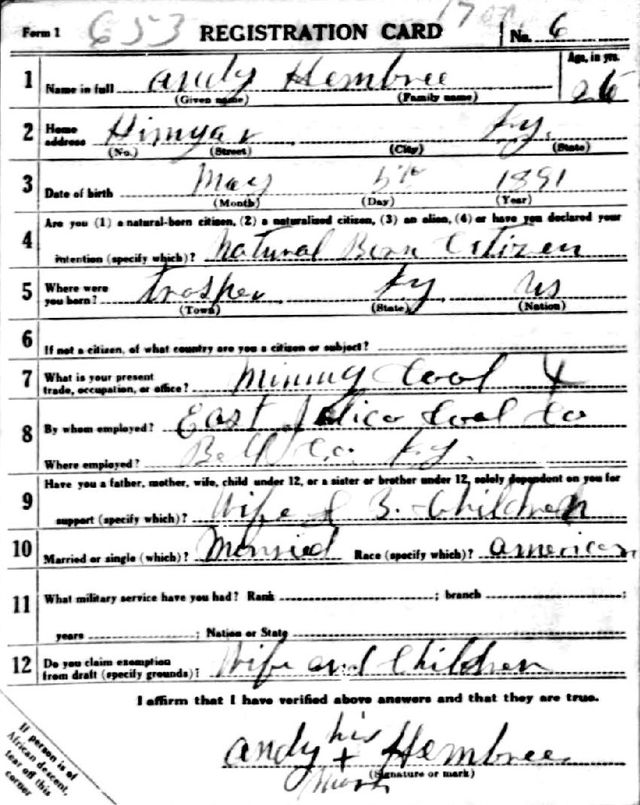 Form 1 653 REGISTRATION CARD No. 6
1 Name in full Andy Hembree Age, in yrs. 26
(Given name) (Family name)
2 Home address Himyar Ky.
(No.) (Street) (City) (State)
3 Date of birth May 5th 1891
(Month) (Day) (Year)
Are you (1) a natural-born citizen, (2) a naturalized citizen, (3) an alien, (4) or have you declared your
4 intention (specify which)? Natural Born Citizen
5 Where were you born? Trosper Ky US
(Town) (State) (Nation)
6 If not a citizen, of what country are you a citizen or subject?
7 What is your present trade, occupation, or office? Mining Cool
8 By whom employed? East Jelico Cool Co
Where employed? Bell Co. Ky.
9 Have you a father, mother, wife, child under 12, or a sister or brother under 12, solely dependent on you for
support (specify which)? Wife & 3. Children
10 Married or single (which)? Married Race (specify which)? American
11 What military service have you had? Rank ; branch ;
years ; Nation or State
12 Do you claim exemption from draft (specify grounds)? Wife and Children
I affirm that I have verified above answers and that they are true.
his
Andy + Hembree
mark
(Signature or mark)
If person is of
African descent,
tear off this
corner